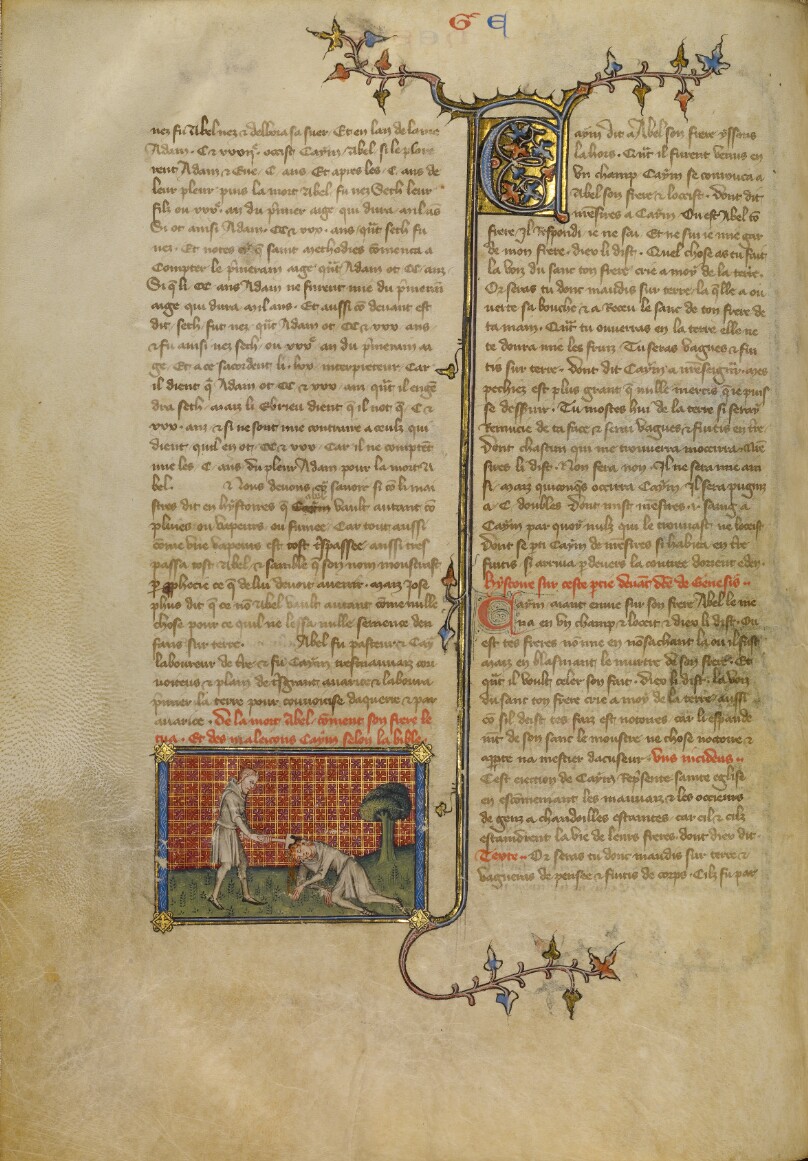 G E
nez fu Abel nez & delbora sa suer. Et en lan de la vie
Adam. C & xxx. occist Caym Abel si le plou
rent Adam & Eve. C. ans. Et apres les. C. ans de
leur pleur puis la mort Abel fu nez Seth leur
filz ou
Si ot ainsi Adam. CC & xxx. ans. qñt seth fu
nez. Et notes cy que saint methodies comenca a
Compter le pmerain aige qñt Adam ot CC. anz
Si q li CC ans Adam ne furent mie du pmerain
aige qui dura. Et aussi cõ devant est
dit seth fut nez. qñt Adam ot CC & xxx ans
& fu ainsi nez seth. ou an du pmerain aa
ge. Et a ce sacordent li lxx interpreteur. Car
il dient q̃ Adam ot CC & xxx. ans qñt il engẽ
dra seth. maiz li Ebrieu dient q̃ il not q̃. C &
xxx. anz. & si ne sont mie contraire a ceulz qui
dient quil en ot CC & xxx. Car il ne comptẽt
mie les. C. ans du pleur Adam pour la mort A
bel. & Nous devons cy savoir si cõ li mai
stres dit en hystoires q̃ Abel vault autant cõ
pluies ou vapeurs ou fumee. Car tout aussi
cõme une vapeurs est tost trespassee aussi tres
passa tost Abel & samble q̃ son nom monstrast
p pphecie ce q̃ de lui devoit avenir. maiz Jose
phus dit q̃ ce nõ Abel vault autant cõme nulle
chose pour ce quil ne lessa nulle semence den
fans sur terre. Abel fu pasteur & Cay
laboureur de tre & fu Caym tresmauvaiz cou
voiteus & plain de tsgrant avarice & laboura
pmier la terre pour couvoitise daquerre & par
avarice. De la mort Abel cõment son frere le
tua. Et des maleicons Caym selon la bible.
Caym dit a Abel son frere yssons
la hors. Qñt il furent venus en
un champ Caym se convoiea a
Abel son frere & loccist. Dont dit
nresires a Caym Ou est Abel tõ
frere. Il respondi ie ne sai. Et ne sui ie mie gar
de mon frere. diex li dist. Quel chose as tu fait
la voix du sanc ton frere crie a moy de la terre.
Or seras tu donc maudis sur terre. la q̃lle a ou
verte sa bouche & a receu le sanc de ton frere de
ta main. Qñt tu ouverras en la terre elle ne
te donra mie ses fruiz. Tu seras vagues & fui
tis sur terre. Dont dit Caym a nreseigñr. mes
pechiez est plus grant q̃ nulle merciz que ie puis
se desservir. Tu mostes hui de la terre si seray
& serai vagues & fuitis en tre
Dont chascun qui me trouverra moccirra. Nre
sires li dist. Non sera non. Il ne sera mie ain
si. maiz quiconqs occirra Caym. Il sera pugniz
a. C. doubles. Dont mist nresires. i. saing a
Caym par quoy nulz qui le trouvast. ne loccist
Dont se pti Caym de nresires si habita en tre
fuitis. si arriva p devers la contree dorient eden.
hystoire sur ceste ptie devãt dce de Genesis.
Caym aiant envie sur son frere Abel le me
na en un champ & loccit & diex li dist. Ou
est tes freres nõ mie en nõsachant la ou il fust
maiz en blasmant le murtre de son frere. Et
qñt il voult celer son fait. Diex li dist. la voix
du sanc ton frere crie a moy de la terre. aussi
cõ sil deist tes faiz est notoires. car li espande
mẽt de son sanc le monstre. ne chose notoire &
apperte na mestier dacuseur. Uns incidens.
Cest execrion de Caym. Represente sainte eglise
en escõmeniant les mauvaiz & les occieurs
de genz a chandoilles estaintes. car cil & cilz
estaindrent la vie de leurs freres. dont diex dit.
Texte. Or seras tu donc maudis sur terre &
vagueras de pensee & fuitis de corps. Cilz fu par